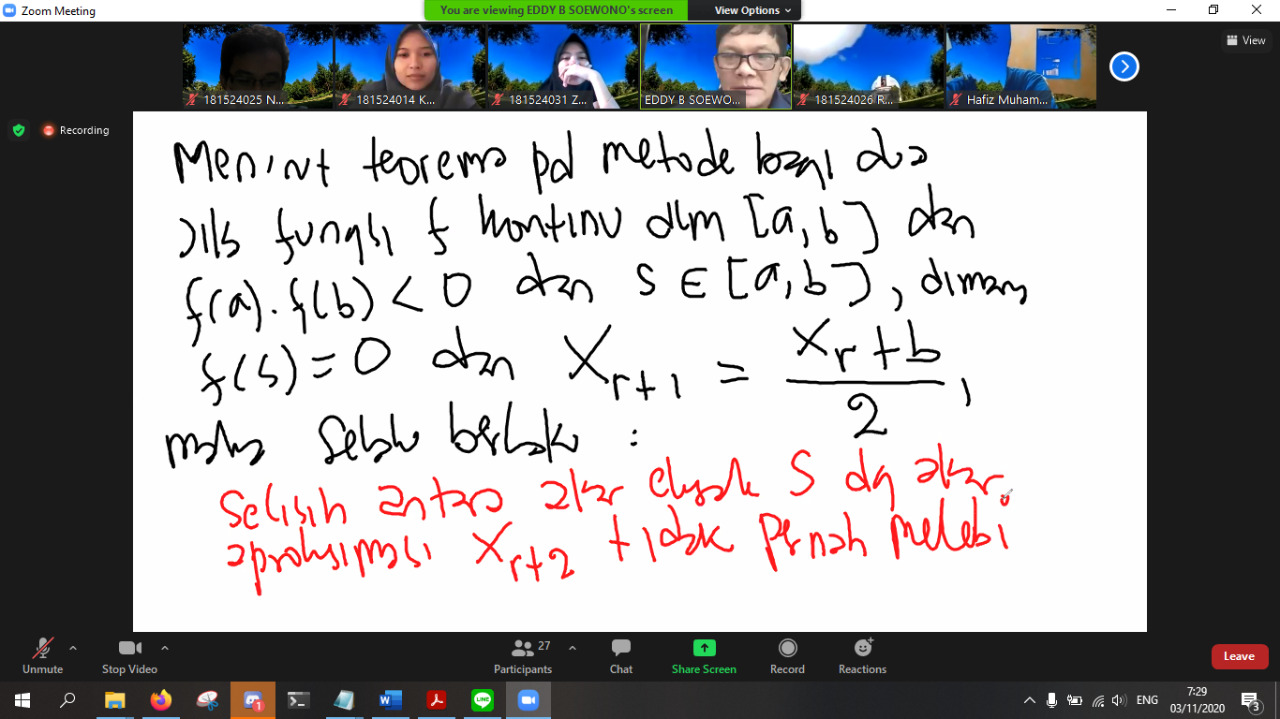 Zoom Meeting
You are viewing EDDY B SOEWONO's screen
View Options
View
181524025 N...
181524014 K...
181524031 Z...
EDDY B SOEWO...
181524026 R...
Hafiz Muham...
Recording
Menurut teorema pd metode bagi dua
jika fungsi f kontinu dlm [a, b] dan
f(a). f(b) < 0 dan S ∈ [a, b], dimana
f(s) = 0 dan X_{r+1} = (X_r + b)/2,
maka selalu berlaku :
Selisih antara akar eksak S dg akar
aproksimasi X_{r+2} tidak pernah melebi
Unmute
Stop Video
Participants
27
Chat
Share Screen
Record
Reactions
Leave
1
ENG
7:29
03/11/2020
3